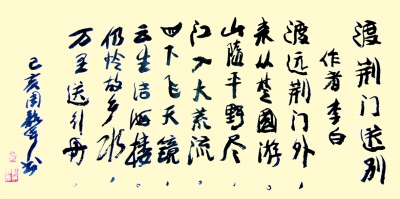 渡荆门送别
作者李白
渡远荆门外,
来从楚國游。
山隨平野尽,
江入大荒流。
月下飞天镜,
云生结海楼。
仍怜故乡水,
万里送行舟。
己亥周